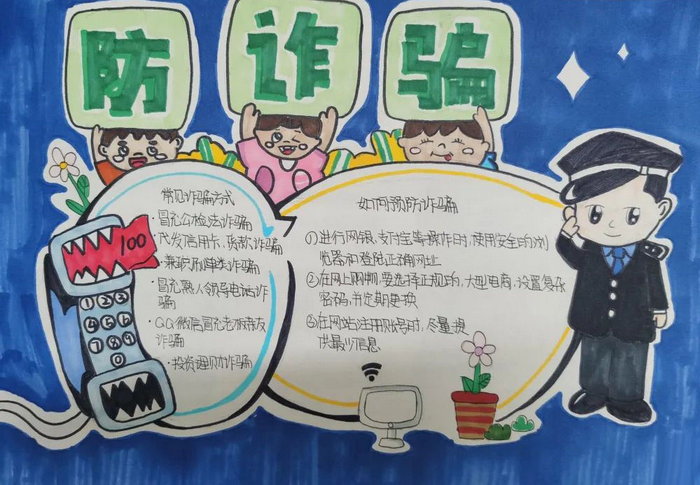 防诈骗
常见诈骗方式
·冒充公检法诈骗
·代发信用卡、贷款诈骗
·兼职刷单类诈骗
·冒充熟人领导电话诈
骗
·QQ微信冒充老板亲友
诈骗
·投资理财诈骗
100
1 2 3
4 5 6
7 8 9
0
如何预防诈骗
①进行网银、支付宝等操作时,使用安全的浏
览器和登陆正确网址
②在网上购物,要选择正规的、大型电商,设置复杂
密码,并定期更换
③在网站注册账号时,尽量提
供最少信息